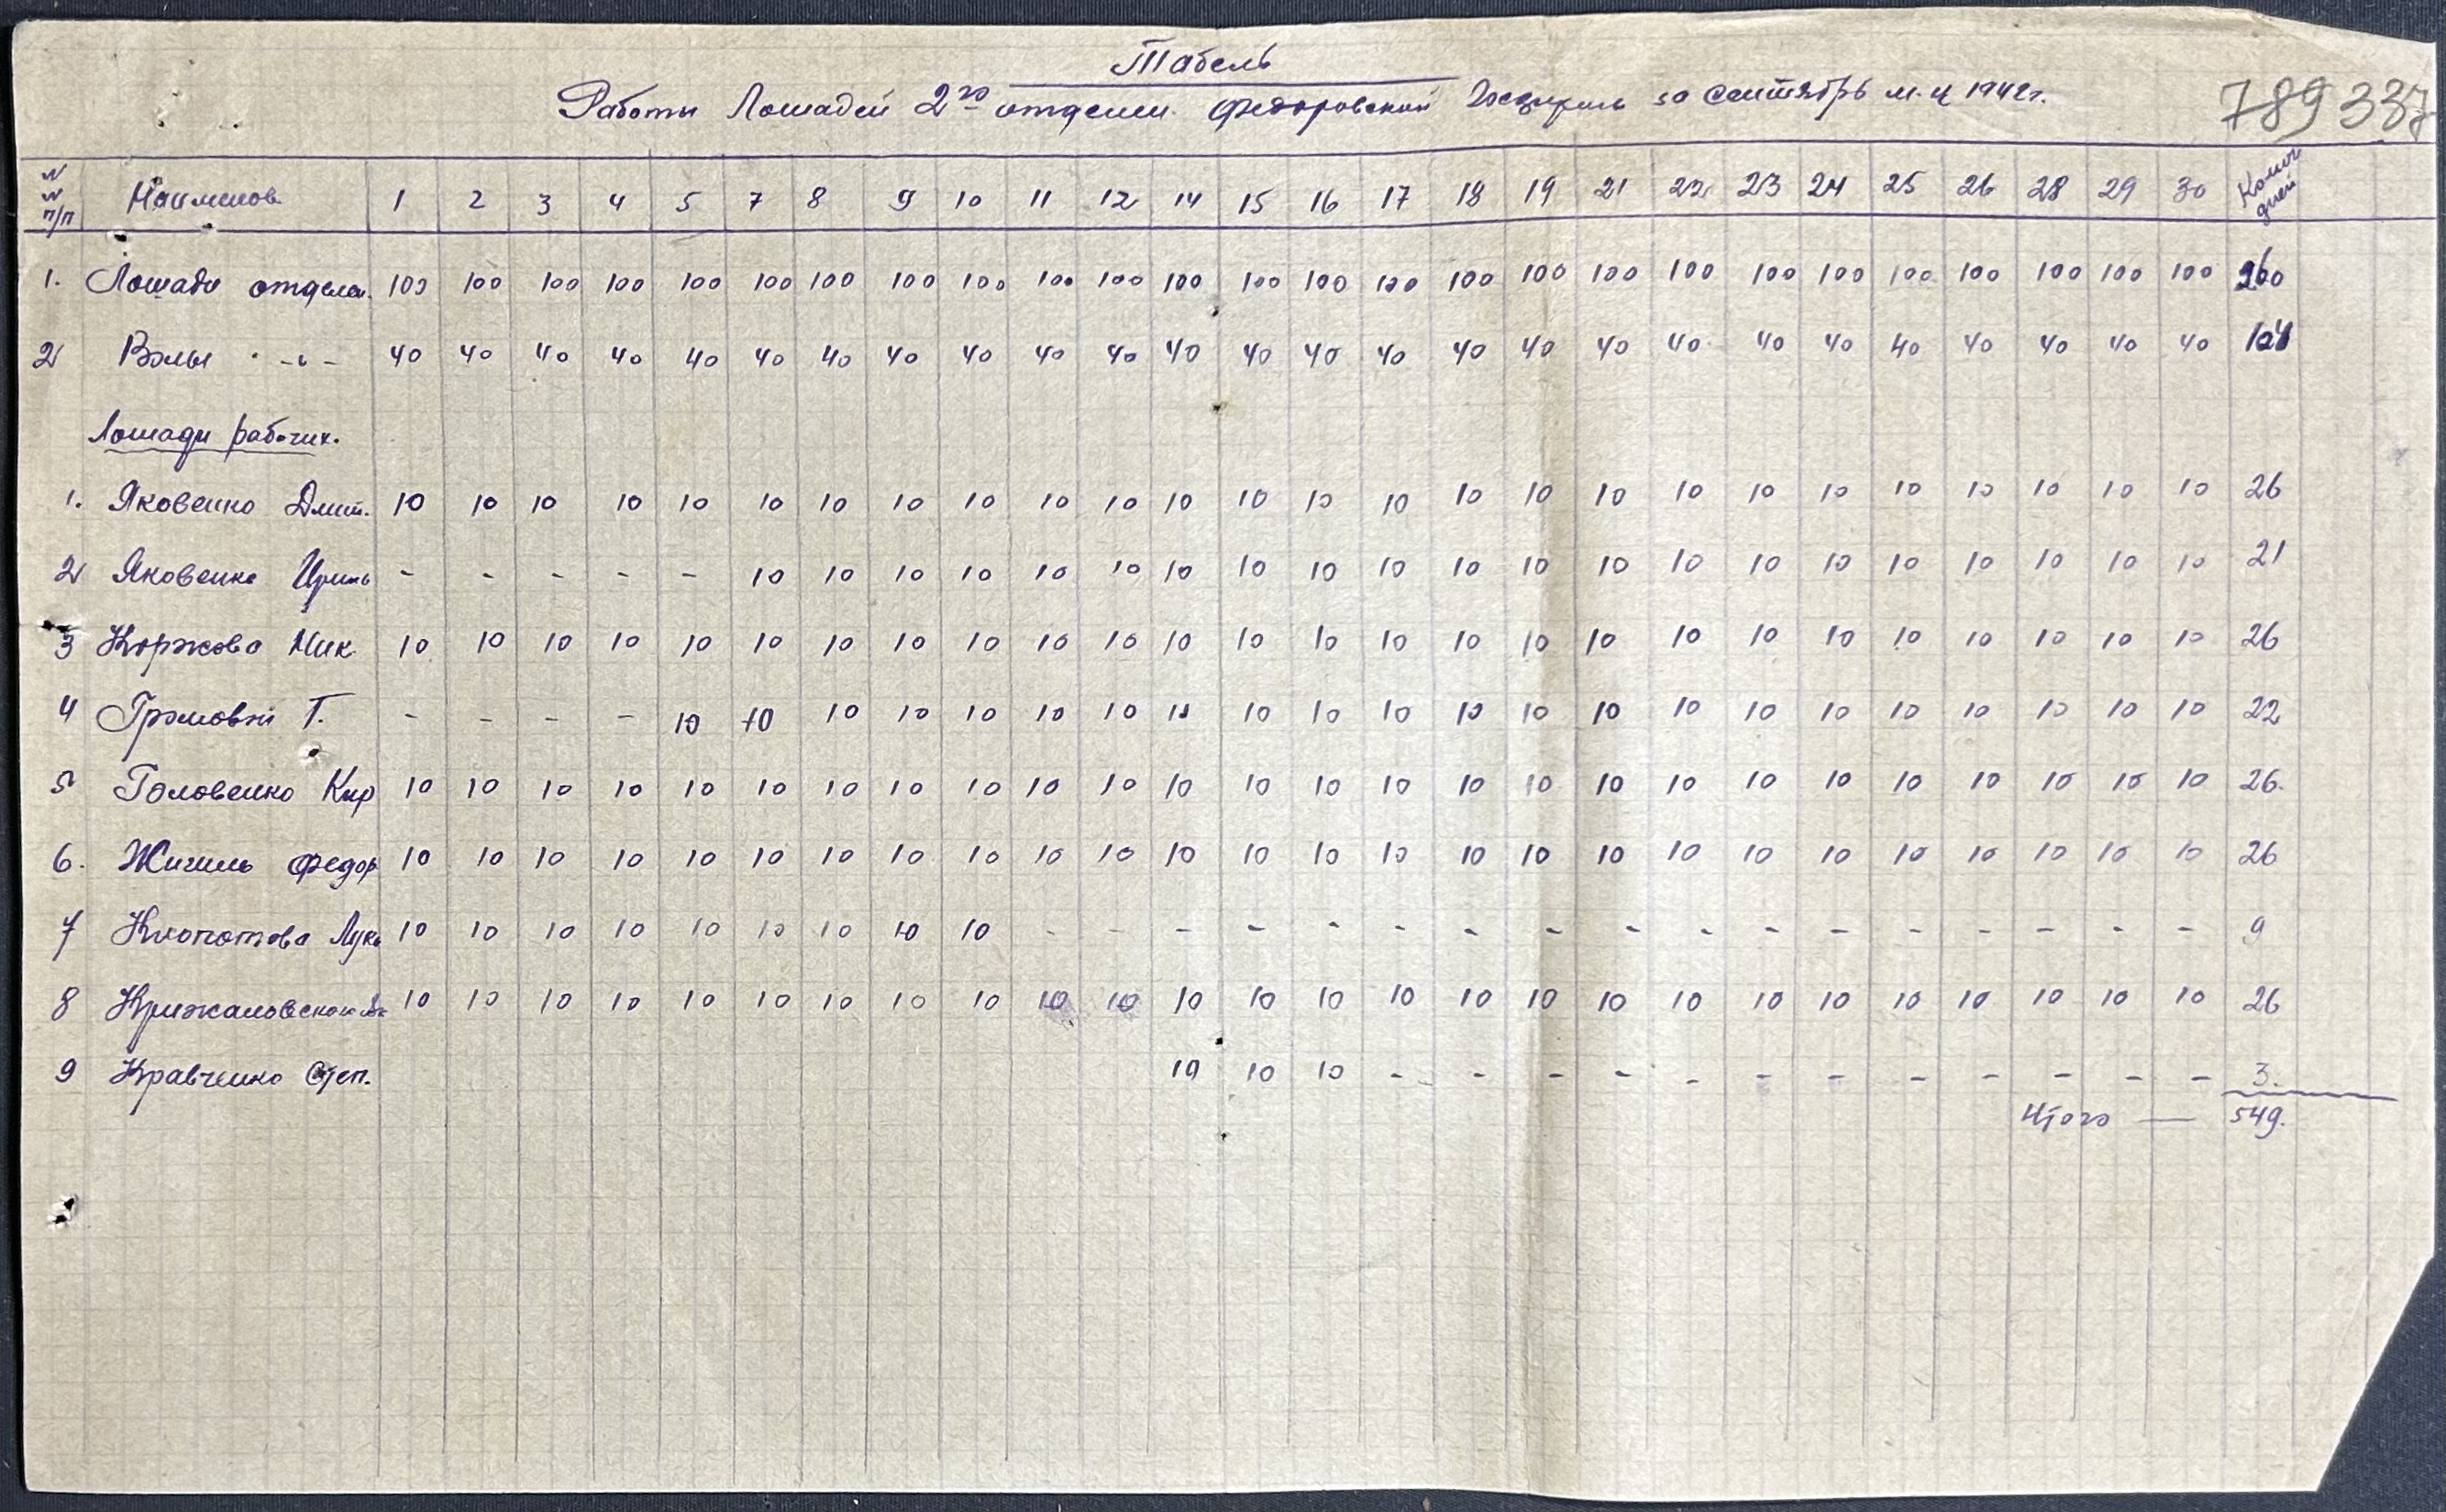 Табель
Работы Лошадей 2го отделен. Федоровской за сентябрь м-ц 1942г.
789 337
№ № п/п Наименов. 1 2 3 4 5 7 8 9 10 11 12 14 15 16 17 18 19 21 22 23 24 25 26 28 29 30 Колич дней
1. Лошади отделен. 100 100 100 100 100 100 100 100 100 100 100 100 100 100 100 100 100 100 100 100 100 100 100 100 100 100 260
2 Волы -"- 40 40 40 40 40 40 40 40 40 40 40 40 40 40 40 40 40 40 40 40 40 40 40 40 40 40 104
Лошади рабочих.
1. Яковенко Дмит. 10 10 10 10 10 10 10 10 10 10 10 10 10 10 10 10 10 10 10 10 10 10 10 10 10 10 26
2 Яковенко - - - - - 10 10 10 10 10 10 10 10 10 10 10 10 10 10 10 10 10 10 10 10 10 21
3 Коржова Ник 10 10 10 10 10 10 10 10 10 10 10 10 10 10 10 10 10 10 10 10 10 10 10 10 10 10 26
4 Громовой Т. - - - - 10 10 10 10 10 10 10 10 10 10 10 10 10 10 10 10 10 10 10 10 10 10 22
5 Головенко Кир 10 10 10 10 10 10 10 10 10 10 10 10 10 10 10 10 10 10 10 10 10 10 10 10 10 10 26.
6. Федор 10 10 10 10 10 10 10 10 10 10 10 10 10 10 10 10 10 10 10 10 10 10 10 10 10 10 26
7 Клопотова Лук 10 10 10 10 10 10 10 10 10 - - - - - - - - - - - - - - - - - 9
8 10 10 10 10 10 10 10 10 10 10 10 10 10 10 10 10 10 10 10 10 10 10 10 10 10 10 26
9 Кравченко Степ. 10 10 10 - - - - - - - - - - - - 3.
Итого — 549.